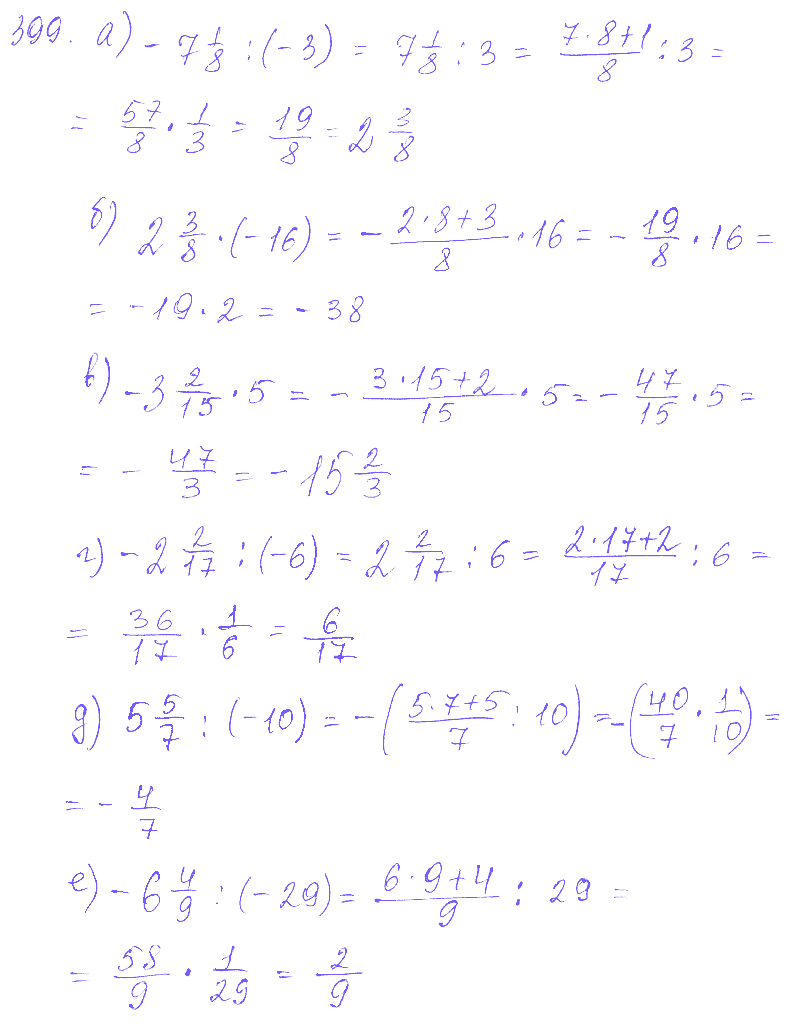 399. а) - 7 1/8 : (-3) = 7 1/8 : 3 = (7·8+1)/8 : 3 =
= 57/8 · 1/3 = 19/8 = 2 3/8
б) 2 3/8 · (-16) = - (2·8+3)/8 · 16 = - 19/8 · 16 =
= -19·2 = -38
в) -3 2/15 · 5 = - (3·15+2)/15 · 5 = - 47/15 · 5 =
= - 47/3 = -15 2/3
г) -2 2/17 : (-6) = 2 2/17 : 6 = (2·17+2)/17 : 6 =
= 36/17 · 1/6 = 6/17
д) 5 5/7 : (-10) = -((5·7+5)/7 : 10) = -(40/7 · 1/10) =
= - 4/7
е) -6 4/9 : (-29) = (6·9+4)/9 : 29 =
= 58/9 · 1/29 = 2/9